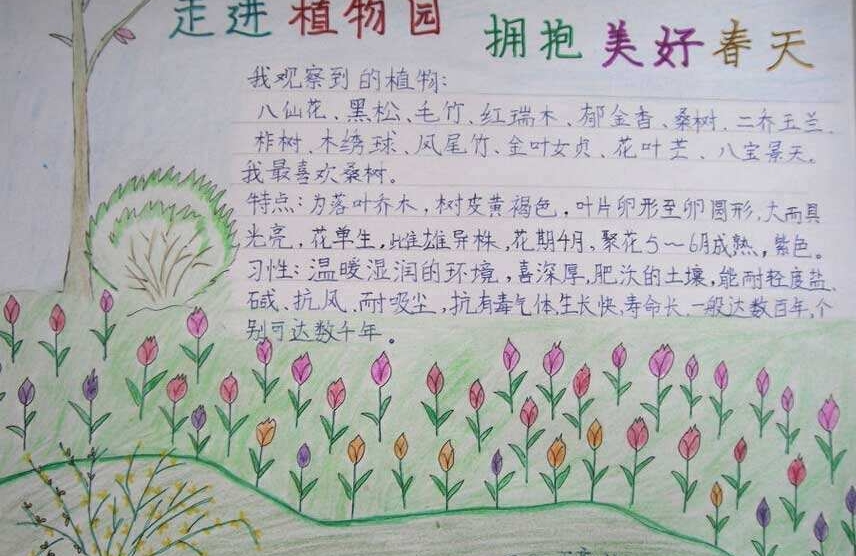 走进植物园
拥抱美好春天
我观察到的植物：
八仙花、黑松、毛竹、红瑞木、郁金香、桑树、二乔玉兰、
柞树、木绣球、凤尾竹、金叶女贞、花叶芒、八宝景天。
我最喜欢桑树。
特点：为落叶乔木，树皮黄褐色，叶片卵形至卵圆形，大而具
光亮，花单生，雌雄异株，花期4月，聚花5～6月成熟，紫色。
习性：温暖湿润的环境，喜深厚，肥沃的土壤，能耐轻度盐、
碱、抗风、耐吸尘，抗有毒气体，生长快，寿命长，一般达数百年，个
别可达数千年。